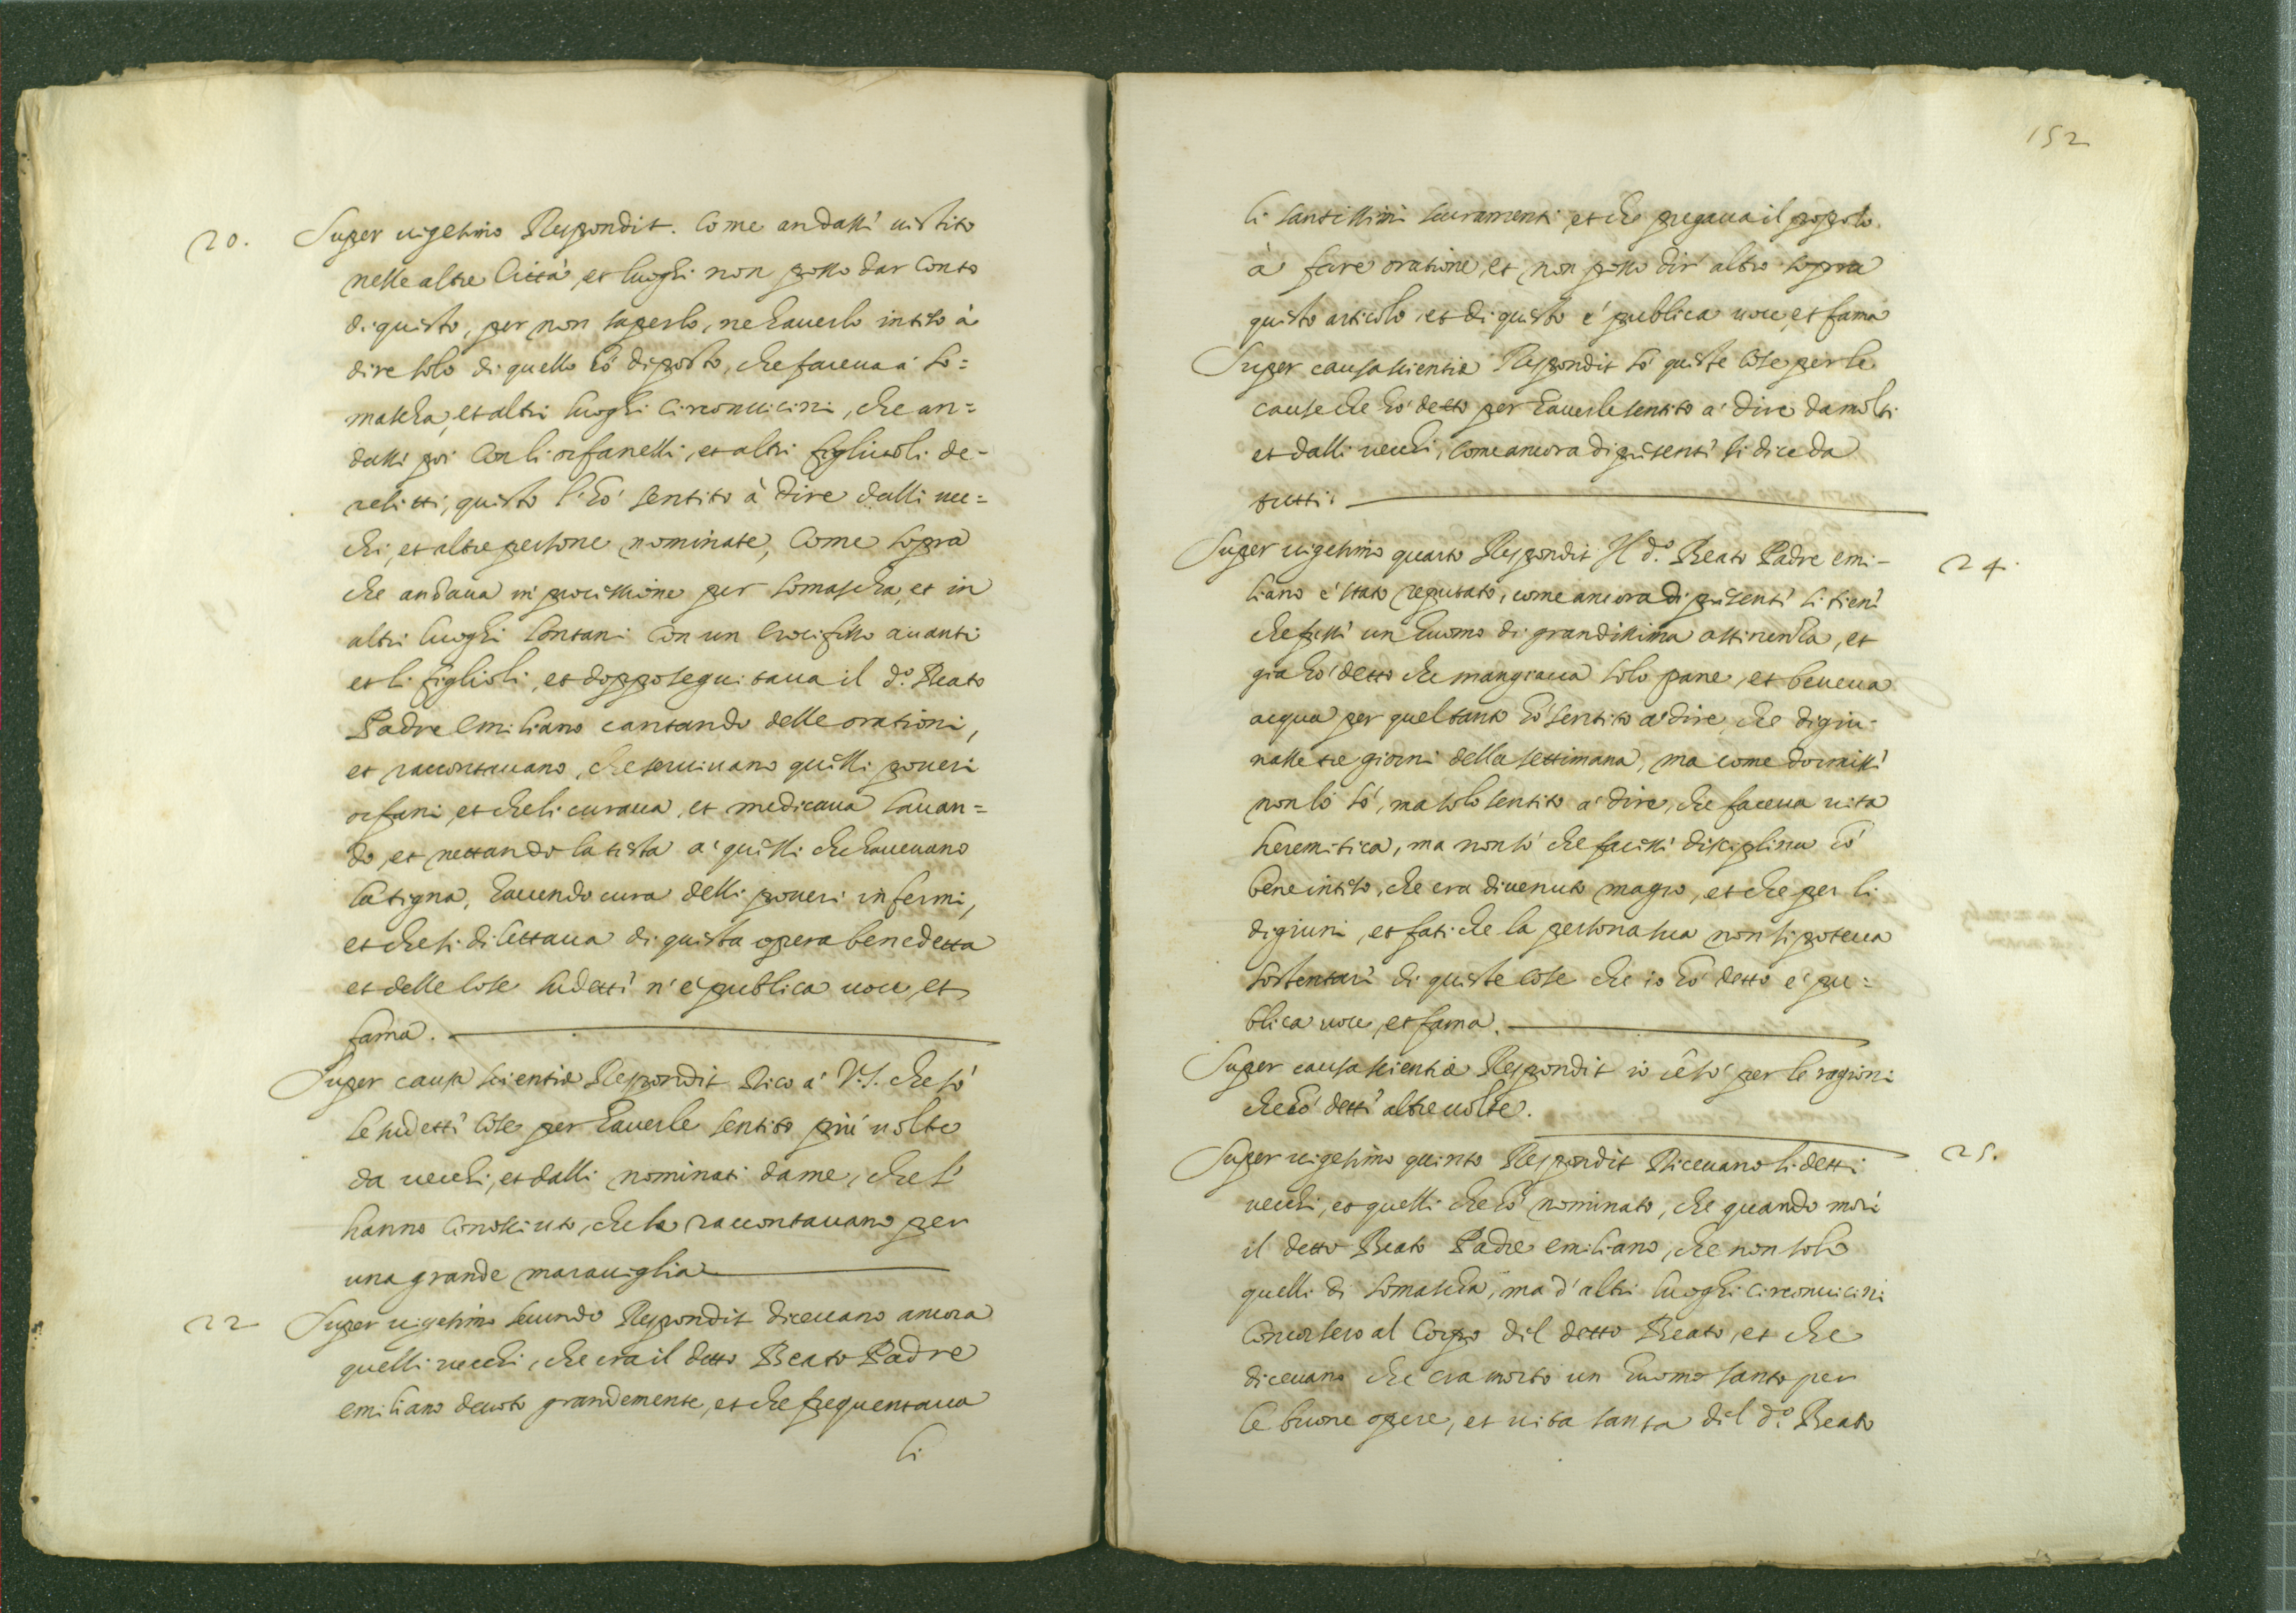 20. Super uigesimo Respondit. Come andassi uistito
nelle altre Città, et luoghi non posso dar conto
di quisto, per non saperlo, ne hauerlo intiso à
dire solo di quello hò diposto, che faceua à So=
mascha, et altri luoghi circonuicini, che an=
dassi poi con li orfanelli, et altri figliuoli de=
relitti, quisto l'hò sentito à dire dalli uec=
chi, et altre persone nominate, come sopra
che andaua in procissione per Somascha, et in
altri luoghi lontani con un Crocifisso auanti
et li figlioli, et doppo sequitaua il d.º Beato
Padre Emiliano cantando delle orationi,
et raccontauano, che seruiuano quilli poueri
orfani, et che li curaua, et medicaua lauan=
do, et nettando la tista a' quilli che haueuano
la tigna, hauendo cura delli poueri infermi,
et che si dilettaua di quista opera benedetta
et delle cose sudetti n'è publica uoce, et
fama.
Super causa scientiæ Respondit Dico à V.S. che sò
le sudetti cose per hauerle sentito più uolte
da uecchi, et dalli nominati da me, che l'
hanno conosciuto, che le raccontauano per
una grande marauiglia
22 Super uigesimo secundo Respondit diceuano ancora
quelli uecchi, che era il detto Beato Padre
emiliano deuoto grandemente, et che frequentaua
li
152
li santissimi sacramenti, et che pregaua il popolo
à fare oratione, et non posso dir altro sopra
quisto articolo, et di quisto è publica uoce, et fama
Super causa scientiæ Respondit sò quiste cose per le
cause che hò detto per hauerle sentito à dire da molti
et dalli uecchi, come ancora di prisenti si dice da
tutti.
Super uigesimo quarto Respondit Il d.º Beato Padre emi=
liano è stato reputato, come ancora di prisenti si tieni
che fussi un huomo di grandissima astinenza, et
già hò detto che mangiaua solo pane, et beueua
acqua per quel tanto hò sentito a' dire, che digiu=
nasse tre giorni della settimana, ma come dormissi
non lo sò, ma solo sentito a' dire, che faceua uita
heremitica, ma non sò che facissi disciplina hò
bene intiso, che era diuenuto magro, et che per li
digiuni, et fatiche la persona sua non si poteua
sostentari di quiste cose che io hò detto è pu=
blica uoce, et fama.
Super causa scientiæ Respondit io le sò per le ragioni
che hò detti altre uolte.
Super uigesimo quinto Respondit Diceuano li detti
uecchi, et quelli che hò nominato, che quando morì
il detto Beato Padre emiliano, che non solo
quelli di Somascha, ma d'altri luoghi circonuicini
Concorsero al Corpo dil detto Beato, et che
diceuano che era morto un huomo santo per
le buone opere, et uita santa dil d.º Beato
24.
25.